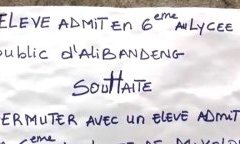 ELEVE ADMIT EN 6eme AU LYCEE
PUBLIC d'ALIBANDENG
SOUHAITE
PERMUTER AVEC UN ELEVE ADMIT
6eme